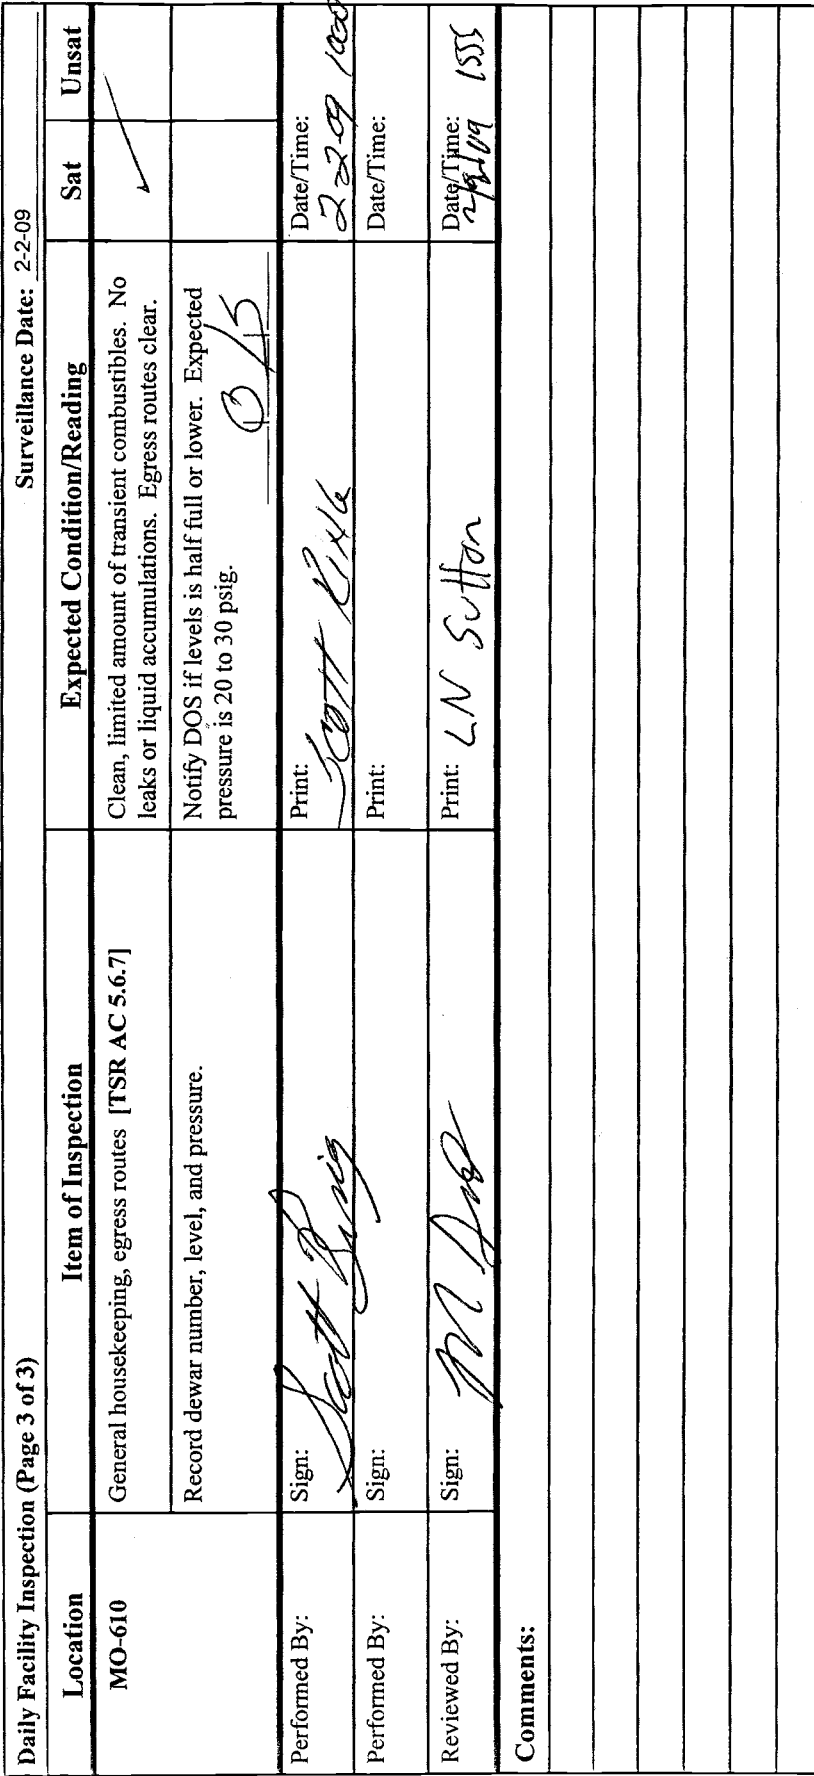 Daily Facility Inspection (Page 3 of 3)
Surveillance Date: 2-2-09
Location
Item of Inspection
Expected Condition/Reading
Sat
Unsat
MO-610
General housekeeping, egress routes [TSR AC 5.6.7]
Clean, limited amount of transient combustibles. No
leaks or liquid accumulations. Egress routes clear.
Record dewar number, level, and pressure.
Notify DOS if levels is half full or lower. Expected
pressure is 20 to 30 psig.
Performed By:
Sign: Scott
Print: Scott
Date/Time:
2-2-09 1000
Performed By:
Sign:
Print:
Date/Time:
Reviewed By:
Sign:
Print: LN Sutton
Date/Time:
1555
Comments: